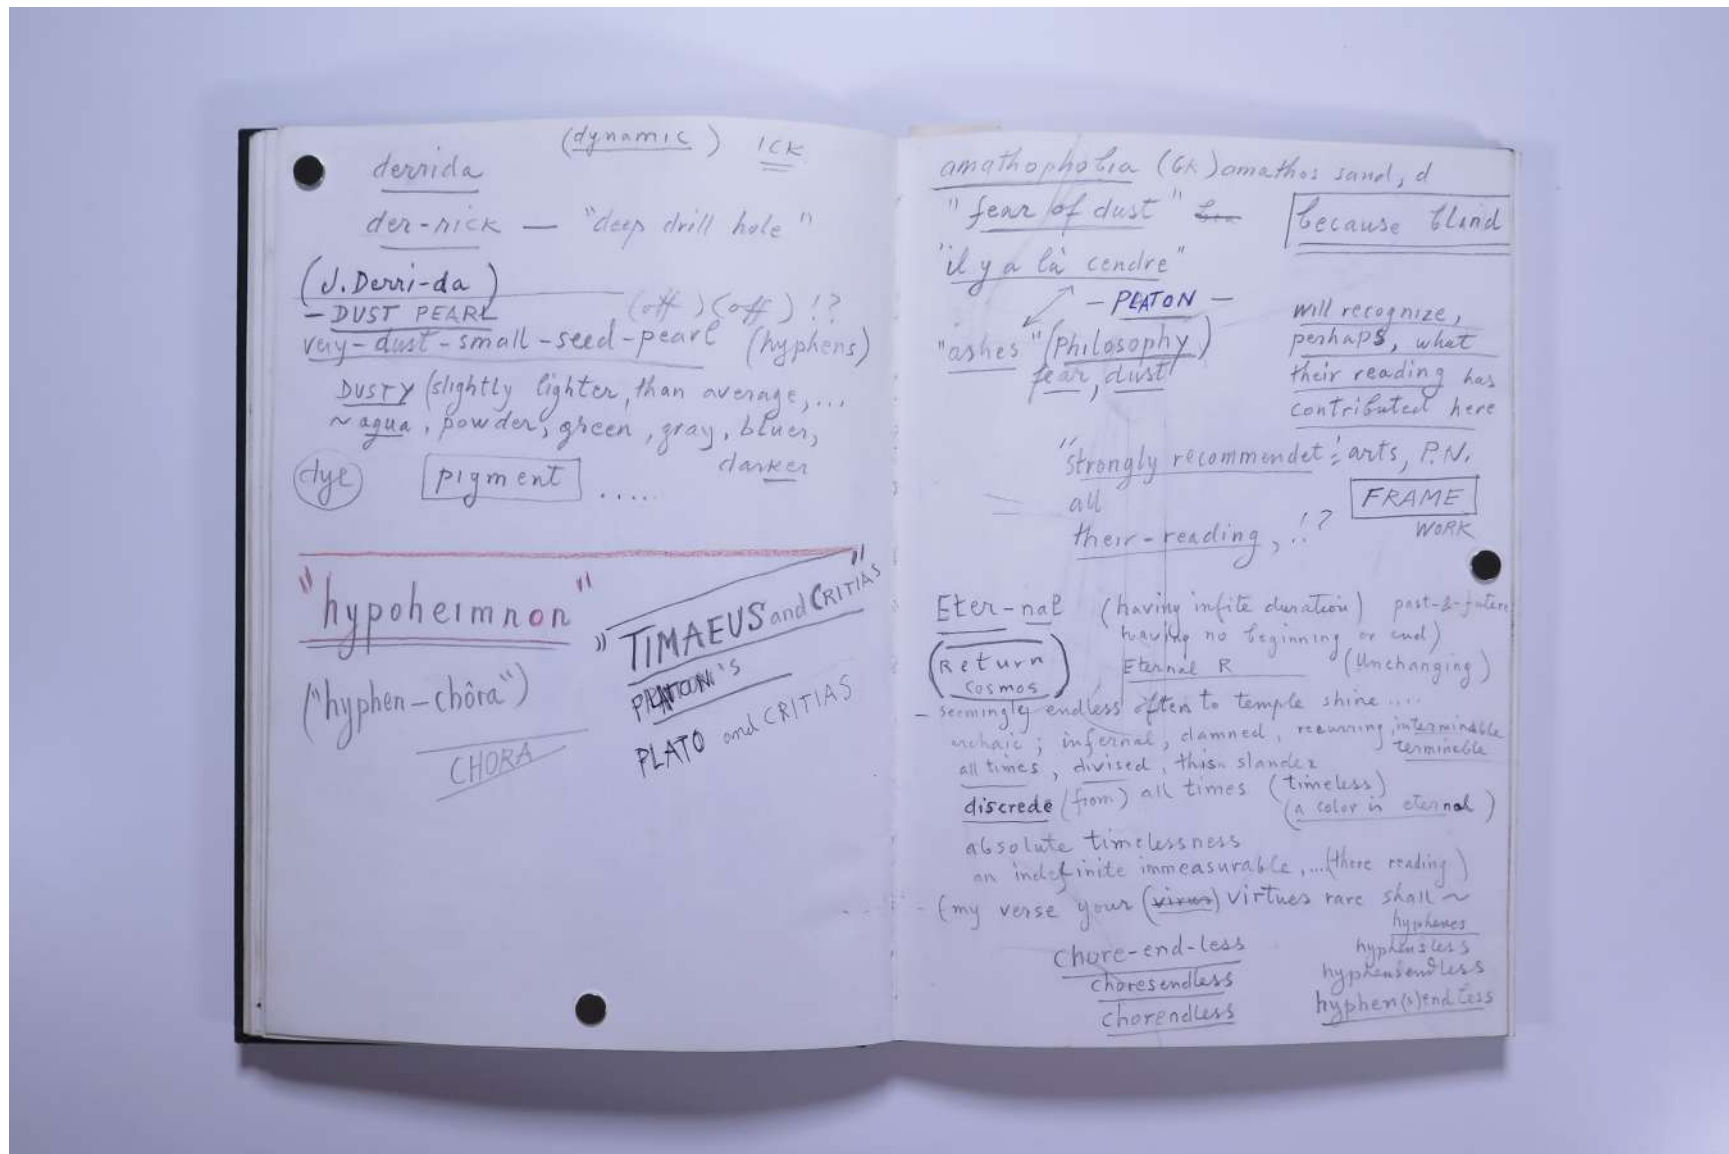 (dynamic) ICK
derrida
der-rick — "deep drill hole"
(J. Derri-da)
- DUST PEARL (off) (off) !?
very-dust-small-seed-pearl (hyphens)
DUSTY (slightly lighter, than average, ...
~ agua, powder, green, gray, bluer,
darker
dye pigment .....
"hypoheimnon"
("hyphen-chôra")
CHORA
"TIMAEUS and CRITIAS"
PLATO and CRITIAS
amathophobia (GK) amathos sand, d
"fear of dust"
because blind
"il y a là cendre"
- PLATON -
"ashes" (Philosophy)
fear, dust
will recognize,
perhaps, what
their reading has
contributed here
"strongly recommendet: arts, P.N.
all
their-reading, !?
FRAME
WORK
Eter-nal (having infite duration) past-&-future
having no beginning or end)
(Return Eternal R (Unchanging)
cosmos)
- seemingly endless often to temple shine ....
archaic; infernal, damned, recurring, interminable
terminable
all times, divised, this slander
discrede (from) all times (timeless)
(a color is eternal)
absolute timelessness
an indefinite immeasurable, ... (there reading)
(my verse your (virus) virtues rare shall ~
hyphenes
chore-end-less hyphensless
choresendless hyphensendless
chorendless hyphen(s)endless